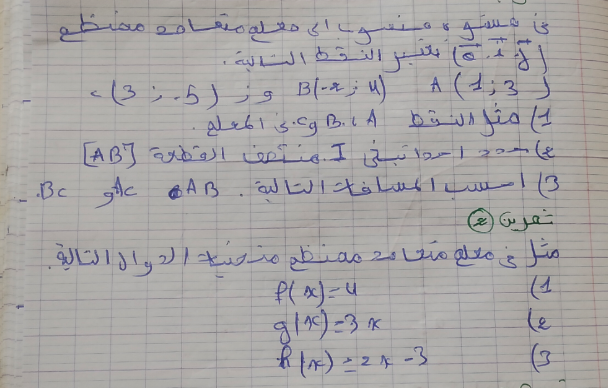 في مستو منسوب الى معلم متعامد ممنظم
(o. i. j) نعتبر النقط التالية.
A (1; 3) B(-2; 4) و C (3; -5)
1) مثل النقط A ، B و C في المعلم.
2) حدد احداثيتي I منتصف القطعة [AB]
3) احسب المسافات التالية. AB ، AC و BC.
تمرين 2
مثل في معلم متعامد ممنظم منحنيات الدوال التالية.
1) f(x)=4
2) g(x)=3x
3) h(x)=2x-3